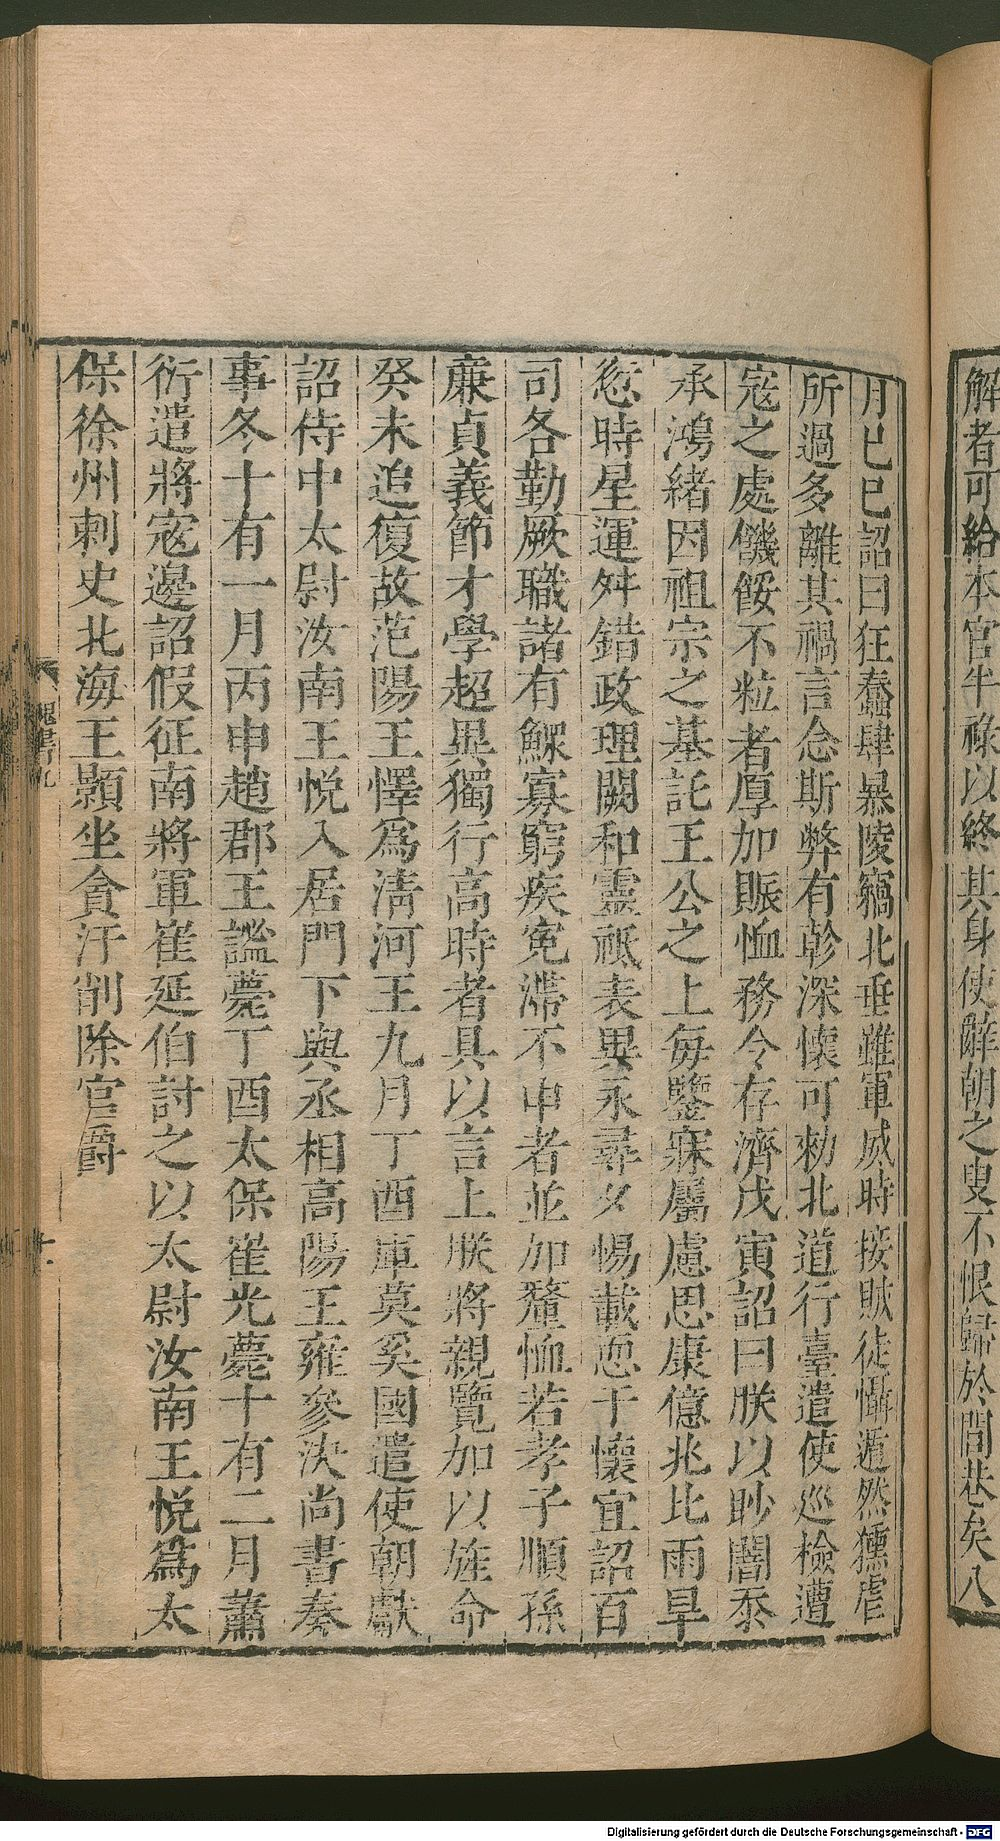 解者可給本官半祿以終其身使辭朝之叟不恨歸於閭巷矣八
月己巳詔曰狂蠢肆暴陵竊北垂雖軍威時接賊徒懾遁然獯虐
所過多離其禍言念斯弊有軫深懷可勑北道行臺遣使巡檢遭
寇之處饑餒不粒者厚加賑恤務令存濟戊寅詔曰朕以眇闇忝
承鴻緒因祖宗之基託王公之上每鑒寐屬慮思康億兆比雨旱
愆時星運舛錯政理闕和靈祇表異永尋夕惕載恧于懷宜詔百
司各勤厥職諸有鰥寡窮疾冤滯不申者並加釐恤若孝子順孫
廉貞義節才學超異獨行高時者具以言上朕將親覽加以旌命
癸未追復故范陽王懌爲清河王九月丁酉庫莫奚國遣使朝獻
詔侍中太尉汝南王悅入居門下與丞相高陽王雍參決尚書奏
事冬十有一月丙申趙郡王謐薨丁酉太保崔光薨十有二月蕭
衍遣將寇邊詔假征南將軍崔延伯討之以太尉汝南王悅爲太
保徐州刺史北海王顥坐貪汙削除官爵
魏書九
十一
Digitalisierung gefördert durch die Deutsche Forschungsgemeinschaft - DFG